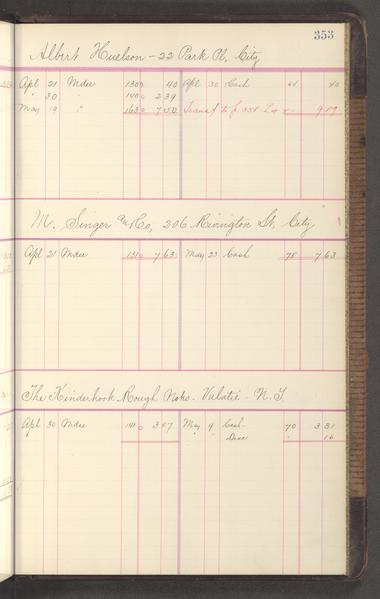 353
Albert Huelson - 22 Park Pl, City
Apl 21 Mdse 130 40 Apl 30 Cash 40
" 30 " 140 2 39
May 19 " 163 7 50 Transf to f 358 L 9 89
M. Singer & Co, 206 Rivington St. City
Apl 21 Mdse 131 7 63 May 23 Cash 78 7 63
The Kinderhook Rough Valatie - N.Y.
Apl 30 Mdse 141 3 97 May 9 Cash 70 3 81
" " Disc " 16